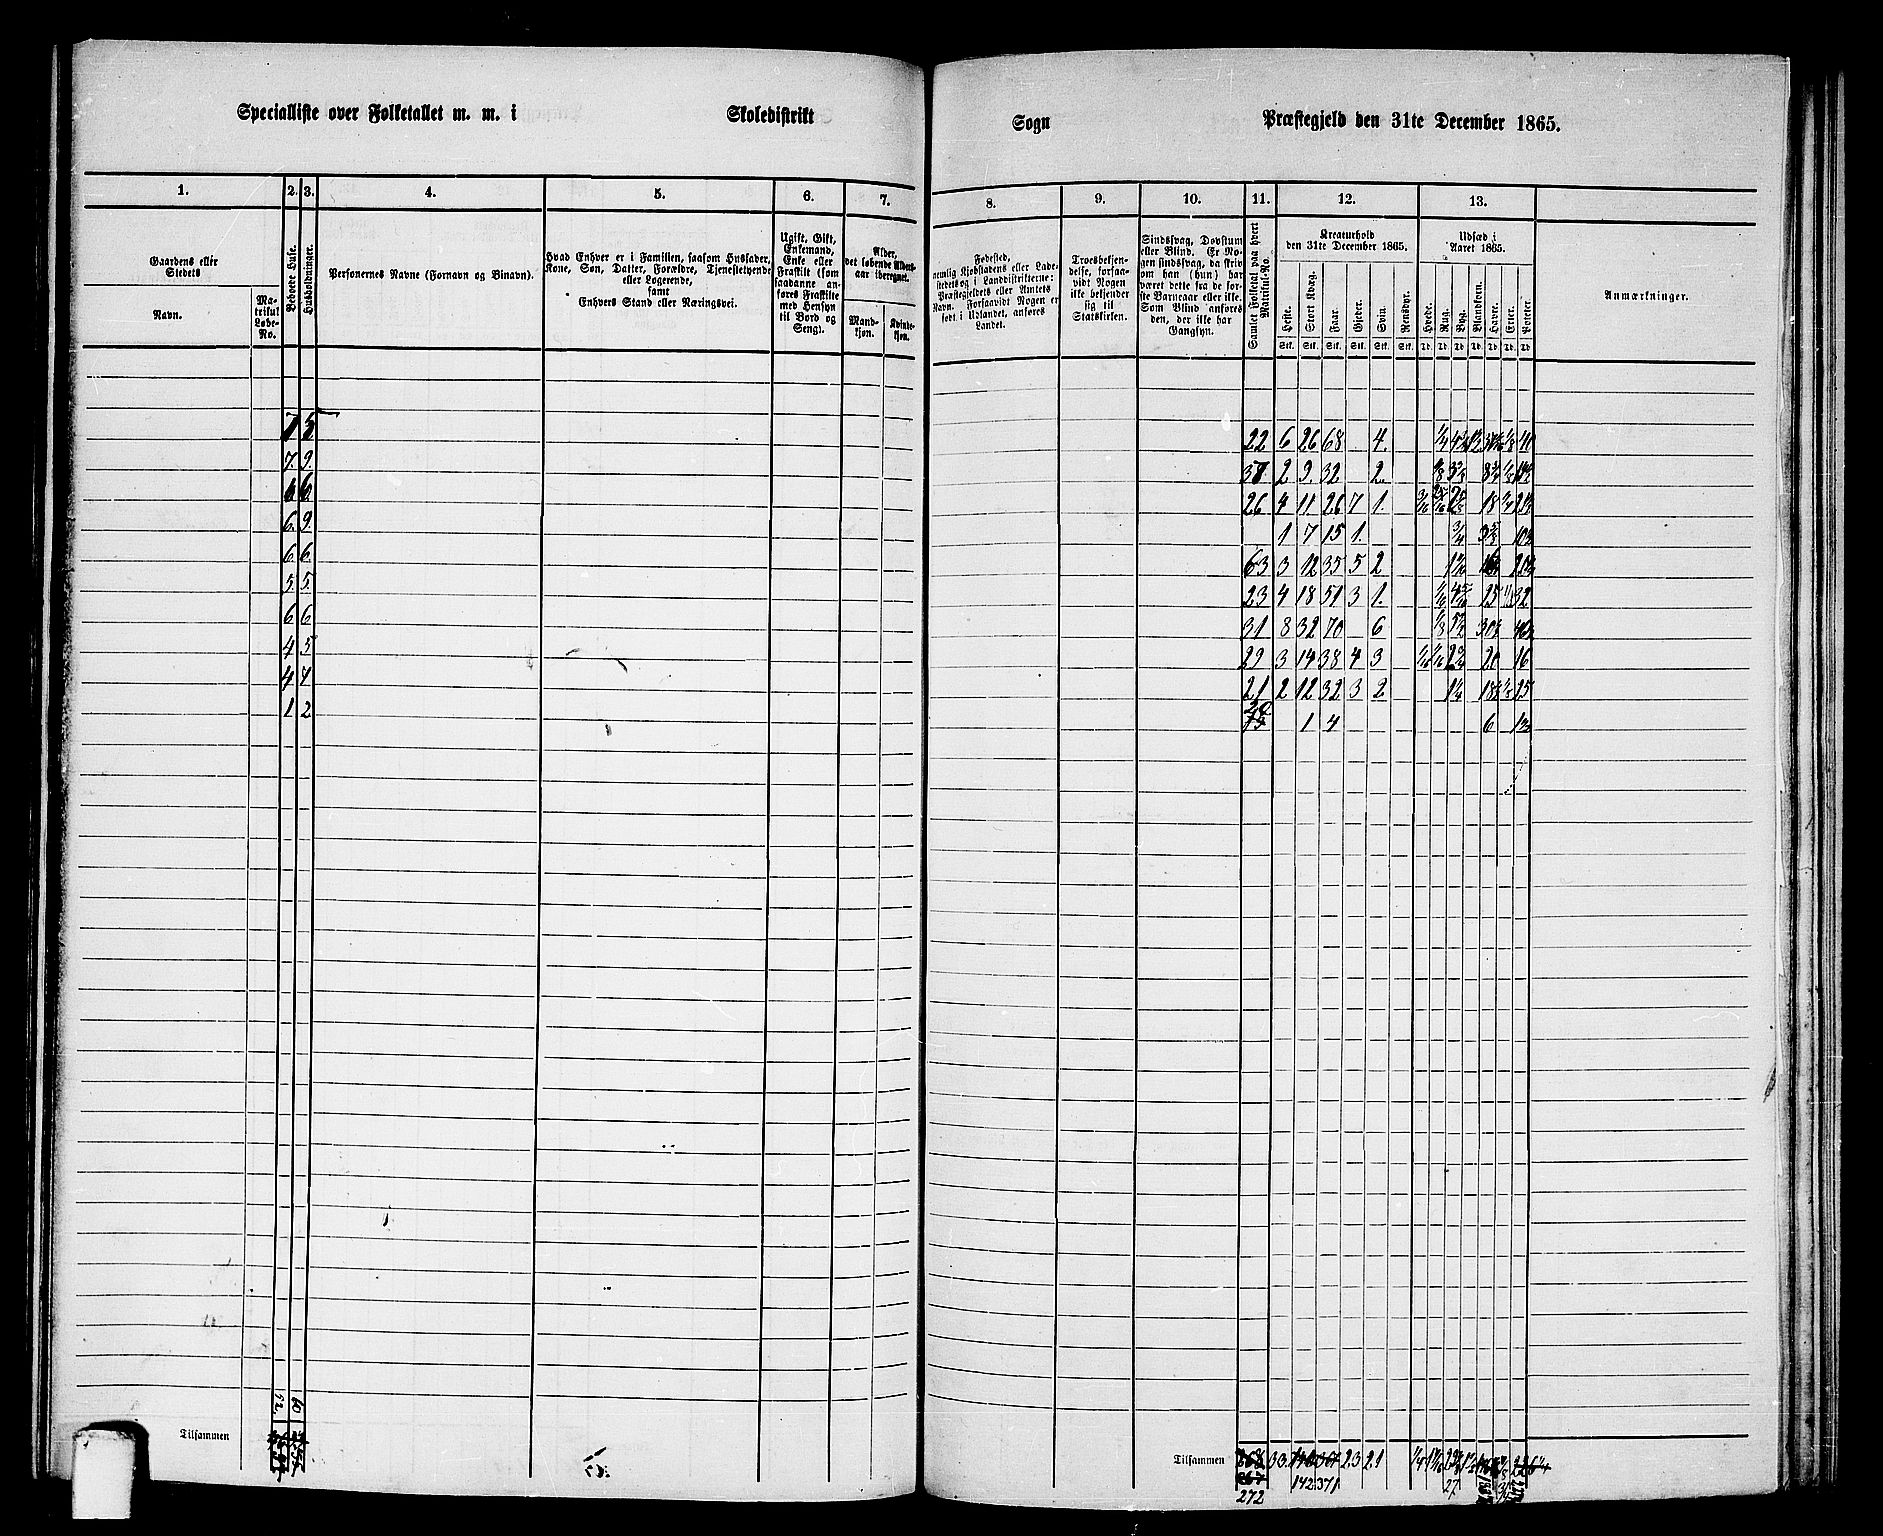 Specialliste over Folketallet m. m. i Skoledistrikt Sogn Præstegjeld den 31te December 1865.
1. 2. 3. 4. 5. 6. 7. 8. 9. 10. 11. 12. 13.
Gaardens eller Stedets
Navn.
Ma-
trikul
Løbe-
No.
Beboede Huse.
Husholdninger.
Personernes Navne (Fornavn og Binavn).
Hvad Enhver er i Familien, saasom Husfader,
Kone, Søn, Datter, Forældre, Tjenestetyende
eller Logerende,
samt
Enhvers Stand eller Næringsvei.
Ugift, Gift,
Enkemand,
Enke eller
Fraskilt (som
saadanne an-
føres Fraskilte
med Hensyn
til Bord og
Seng).
Alder,
det løbende Alders-
aar iberegnet.
Mand-
kjøn.
Kvinde-
kjøn.
Fødested,
nemlig Kjøbstadens eller Lade-
stedets og i Landdistrikterne:
Præstegjeldets eller Amtets
Navn. Forsaavidt Nogen er
født i Udlandet, anføres
Landet.
Troesbekjen-
delse, forsaa-
vidt Nogen
ikke bekjender
sig til
Statskirken.
Sindssvag, Døvstum
eller Blind. Er No-
gen sindssvag, da skriv
om han (hun) har
været dette fra de før-
ste Barneaar eller ikke.
Som Blind anføres
den, der ikke har
Gangsyn.
Samlet Folketal paa hvert
Matrikul-No.
Kreaturhold
den 31te December 1865.
Heste. Stort Kvæg. Faar. Gjeder. Svin. Rensdyr.
Stk. Stk. Stk. Stk. Stk. Stk.
Udsæd i
Aaret 1865.
Hvede. Rug. Byg. Blandkorn. Havre. Erter. Poteter
Td. Td. Td. Td. Td. Td. Td
Anmærkninger.
22 6 26 68 4.
7. 9. 2 9. 32 2.
6. 26 4 11 26 7 1. 18
6. 9. 1 7 15 1.
6. 6. 63 3 12 35 5 2
5. 5. 23 4 18 51 3 1. 25 32
6 6 31 8 32 70 6
4 5 29 3 14 38 4 3 20 16
4 4 21 2 12 32 3 2 25
1 2 20 1 4 6
52. 60
Tilsammen
Tilsammen 33 23 21
272 142 371 27